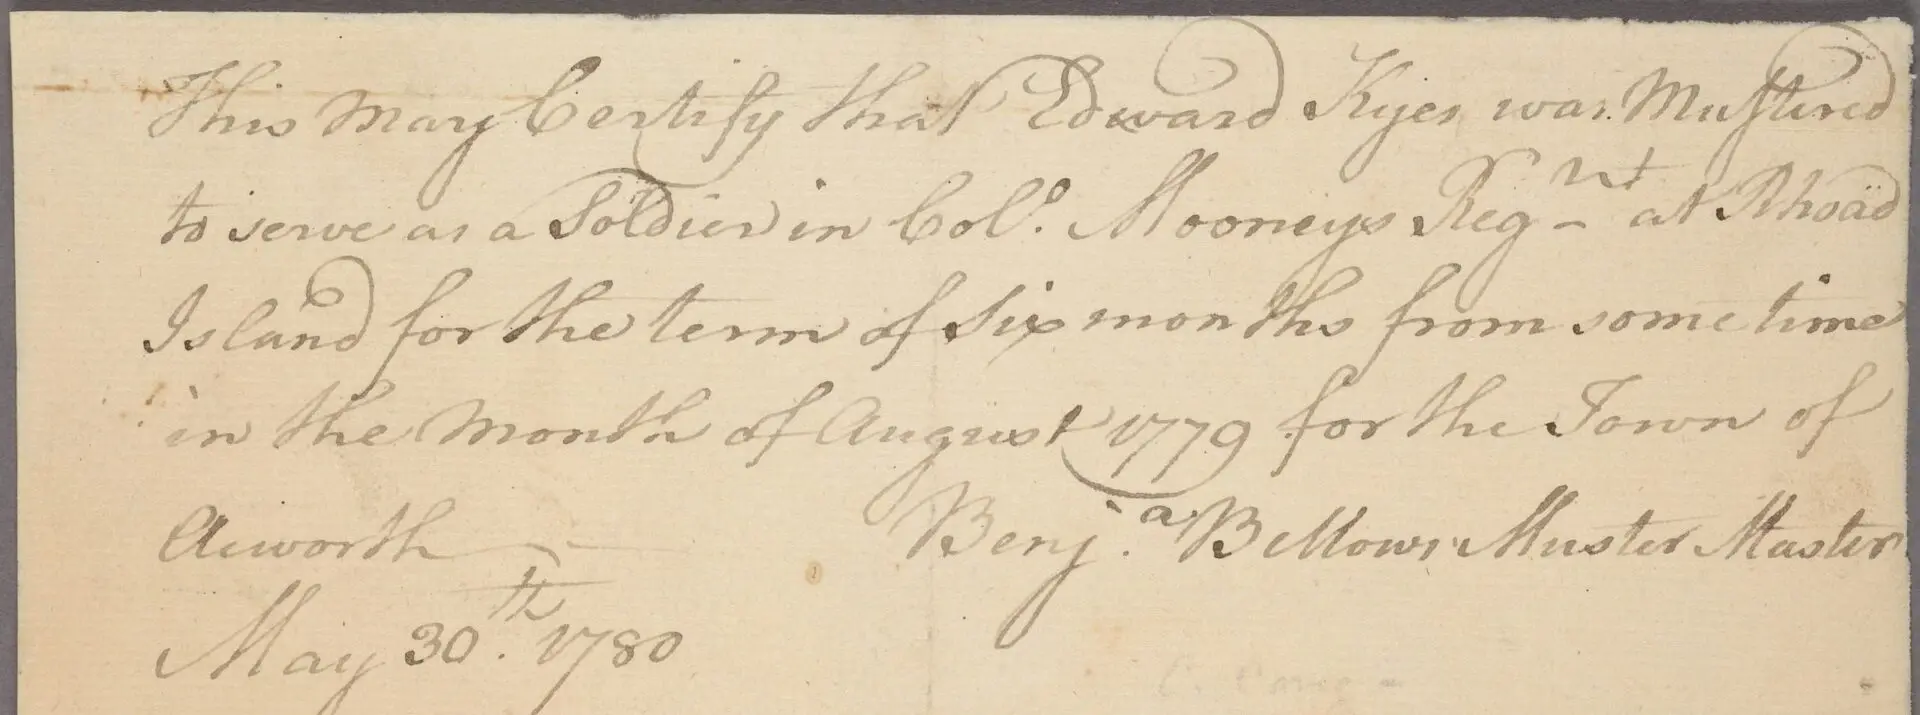 This may Certify that Edward Kyes was Mustered
to serve as a Soldier in Colo. Mooneys Regnt at Rhoad
Island for the term of Six months from some time
in the month of August 1779 for the Town of
Acworth
Benja. Bellows Muster Master
May 30th. 1780